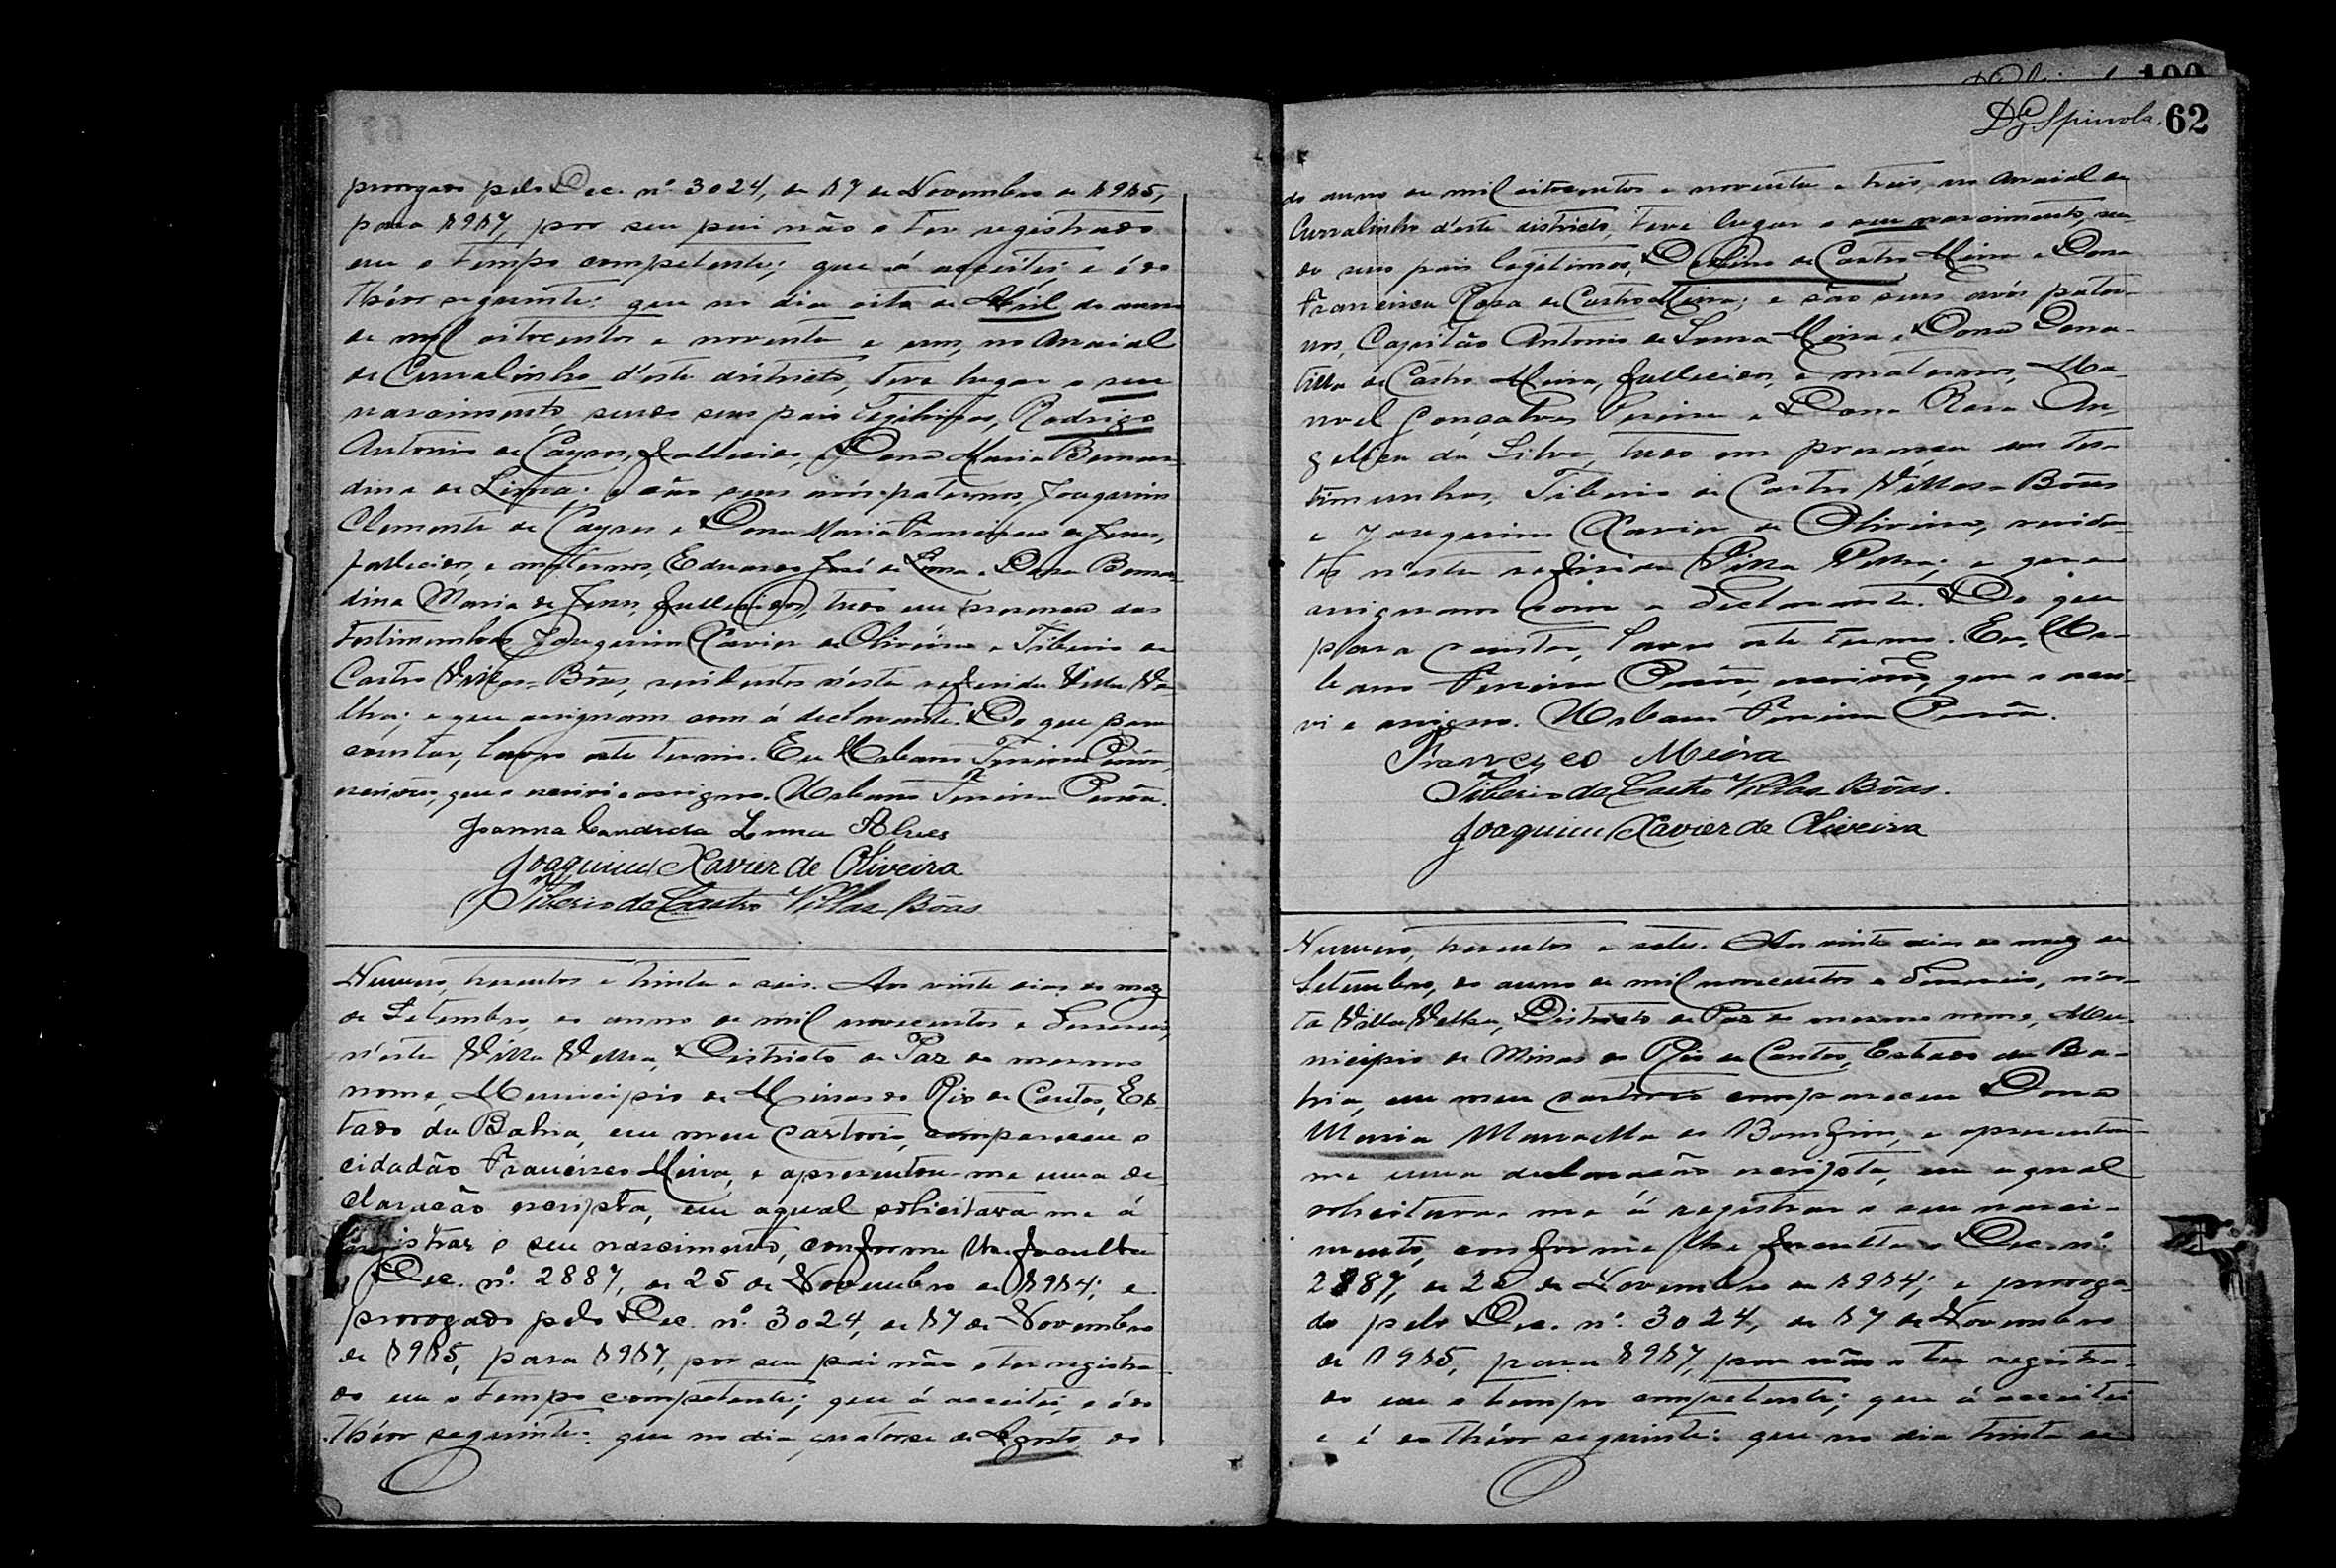 prorogado pelo Dec. nº 3024, de 17 de Novembro de 1915,
para 1917, por seu pai não o ter registrado
em o tempo competente; que á acceitei; e é do
théor seguinte: que no dia oito de Abril do anno
de mil oitocentos e noventa e um, no Arraial
de Curralinho d'este districto, teve lugar o seu
nascimento, sendo seus pais legitimos, Rodrigo
Antonio de Cayres, fallecido, e Dona Maria Bernar-
dina de Lima: e são seus avós paternos, Joaquim
Clemente de Cayres e Dona Maria Francisca de Jesus,
fallecidos, e maternos, Eduardo José de Lima e Dona Bernar-
dina Maria de Jesus, fallecidos, tudo em presença das
testimunhas Joaquim Xavier de Oliveira e Tiberio de
Castro Villas-Bôas, residentes n'esta referida Villa Ve-
lha; e que assignam com á declarante. Do que para
constar, lavro este termo. Eu Urbano Ferreira
escrivão, que o escrevi e assigno. Urbano Ferreira
Joanna Candida Lima Alves
Joaquim Xavier de Oliveira
Tiberio de Castro Villas Bôas
Numero, trezentos e trinta e seis. Aos vinte dias do mez
de Setembro, do anno de mil novecentos e deseseis,
n'esta Villa Velha, Districto de Paz do mesmo
nome, Municipio de Minas do Rio de Contas, Es-
tado da Bahia, em meu cartorio, compareceu o
cidadão Francisco Meira, e apresentou-me uma de
claração escripta, em a qual solicitava-me á
registrar o seu nascimento, conforme lhe faculta
o Dec. nº. 2887, de 25 de Novembro de 1914; e
prorogado pelo Dec. nº. 3024, de 17 de Novembro
de 1915, para 1917, por seu pai não o ter registra-
do em o tempo competente; que á acceitei, e é do
théor seguinte: que no dia quatorse de Agosto do
Spinola. 62
do anno de mil oitocentos e noventa e tres, no Arraial de
Curralinho d'este districto, teve lugar o seu nascimento, sen-
do seus pais legitimos, de Castro Meira e Dona
Francisca Rosa de Castro Meira; e são seus avós pater-
nos, Capitão Antonio de Souza Meira e Dona Dona-
tilla de Castro Meira, fallecidos, e maternos, Ma-
noel Gonçalves Pereira e Dona Rosa An-
gelica da Silva, tudo em presença das tes-
timunhas, Tiberio de Castro Villas-Bôas
e Joaquim Xavier de Oliveira, residen-
tes n'esta referida Villa Velha; e que
assignam com o declarante. Do que
para constar, lavro este termo. Eu, Ur-
bano Ferreira escrivão, que o escre-
vi e assigno. Urbano Ferreira
Francisco Meira
Tiberio de Castro Villas Bôas.
Joaquim Xavier de Oliveira
Numero, trezentos e sete. Aos vinte dias do mez de
Setembro, do anno de mil novecentos e deseseis, n'es-
ta Villa Velha, Districto de Paz do mesmo nome, Mu-
nicipio de Minas do Rio de Contas, Estado da Ba-
hia, em meu cartorio compareceu Dona
Maria do Bomfim, e apresentou
me uma declaração escripta, em a qual
solicitava-me á registrar o seu nasci-
mento, conforme lhe faculta o Dec. nº.
2887, de 25 de Novembro de 1914; e proroga-
do pelo Dec. nº. 3024, de 17 de Novembro
de 1915, para 1917, por não o ter registra-
do em o tempo competente; que á acceitei
e é do théor seguinte: que no dia trinta de